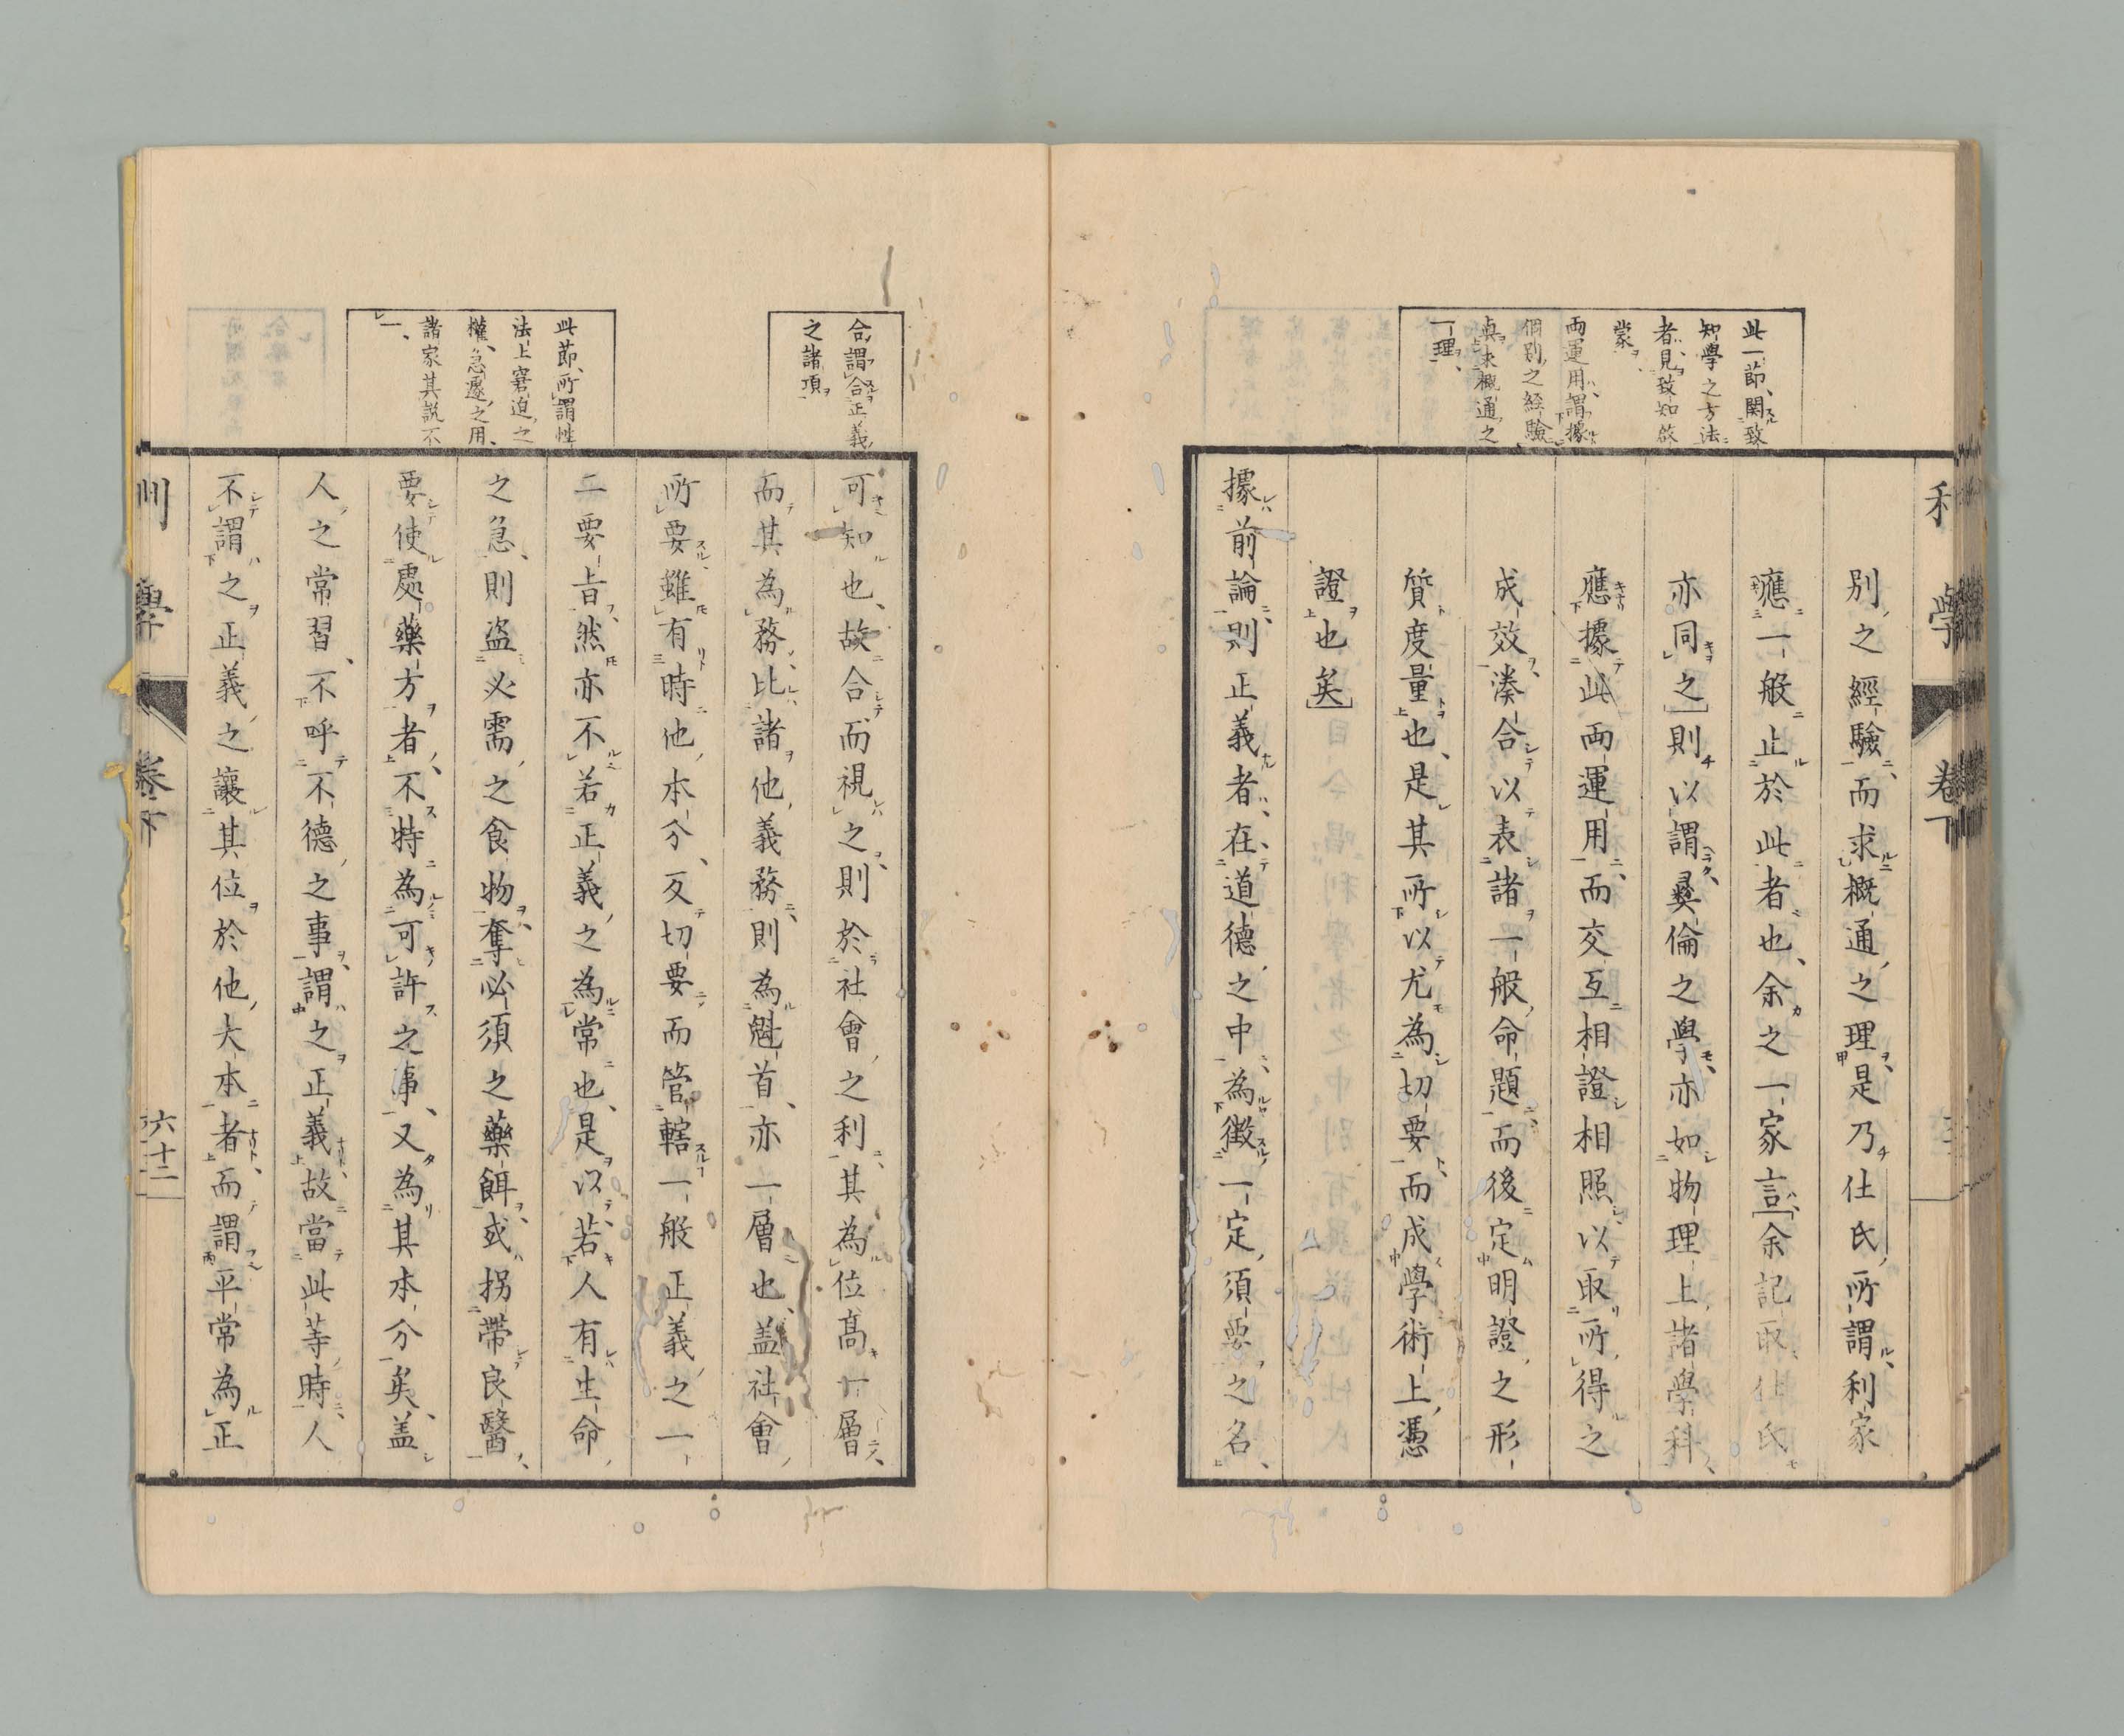 利學 卷下
此一節、関致
知學之方法
者、見致知啟
蒙、
両運用、謂據
個別之經驗
與求概通之
一理、
別之經驗而求概通之理是乃仕氏所謂利家
應一般止於此者也、余之一家言余記取仕氏
亦同之則以謂彜倫之學亦如物理上諸學科、
應據此両運用而交互相證相照以取所得之
成效湊合以表諸一般命題而後定明證之形
質度量也、是其所以尤為切要而成學術上憑
證也矣
據前論則正義者、在道德之中為徵一定須要之名、
合、謂合正義
之諸項
此節、所謂性
法上窘迫之
權、急遽之用、
諸家其説不
一、
可知也、故合而視之、則於社會之利其為位髙一層
而其為務、比諸他義務則為魁首、亦一層也、盖社會
所要雖有時他本分、反切要而管轄一般正義之一
二要旨、然亦不若正義之為常也、是以若人有生命
之急、則盗必需之食物奪必須之藥餌或拐帶良醫
要使處藥方者、不特為可許之事、又為其本分矣、盖
人之常習、不呼不德之事謂之正義故當此等時人
不謂之正義之讓其位於他大本者而謂平常為正
利學 卷下 六十二